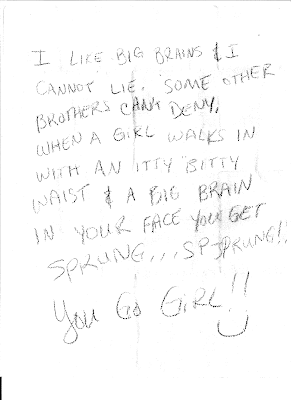 I LIKE BIG BRAINS & I
CANNOT LIE. SOME OTHER
BROTHERS CAN'T DENY.
WHEN A GIRL WALKS IN
WITH AN ITTY BITTY
WAIST & A BIG BRAIN
IN YOUR FACE YOU GET
SPRUNG...SP SPRUNG!!
You Go GiRL!!